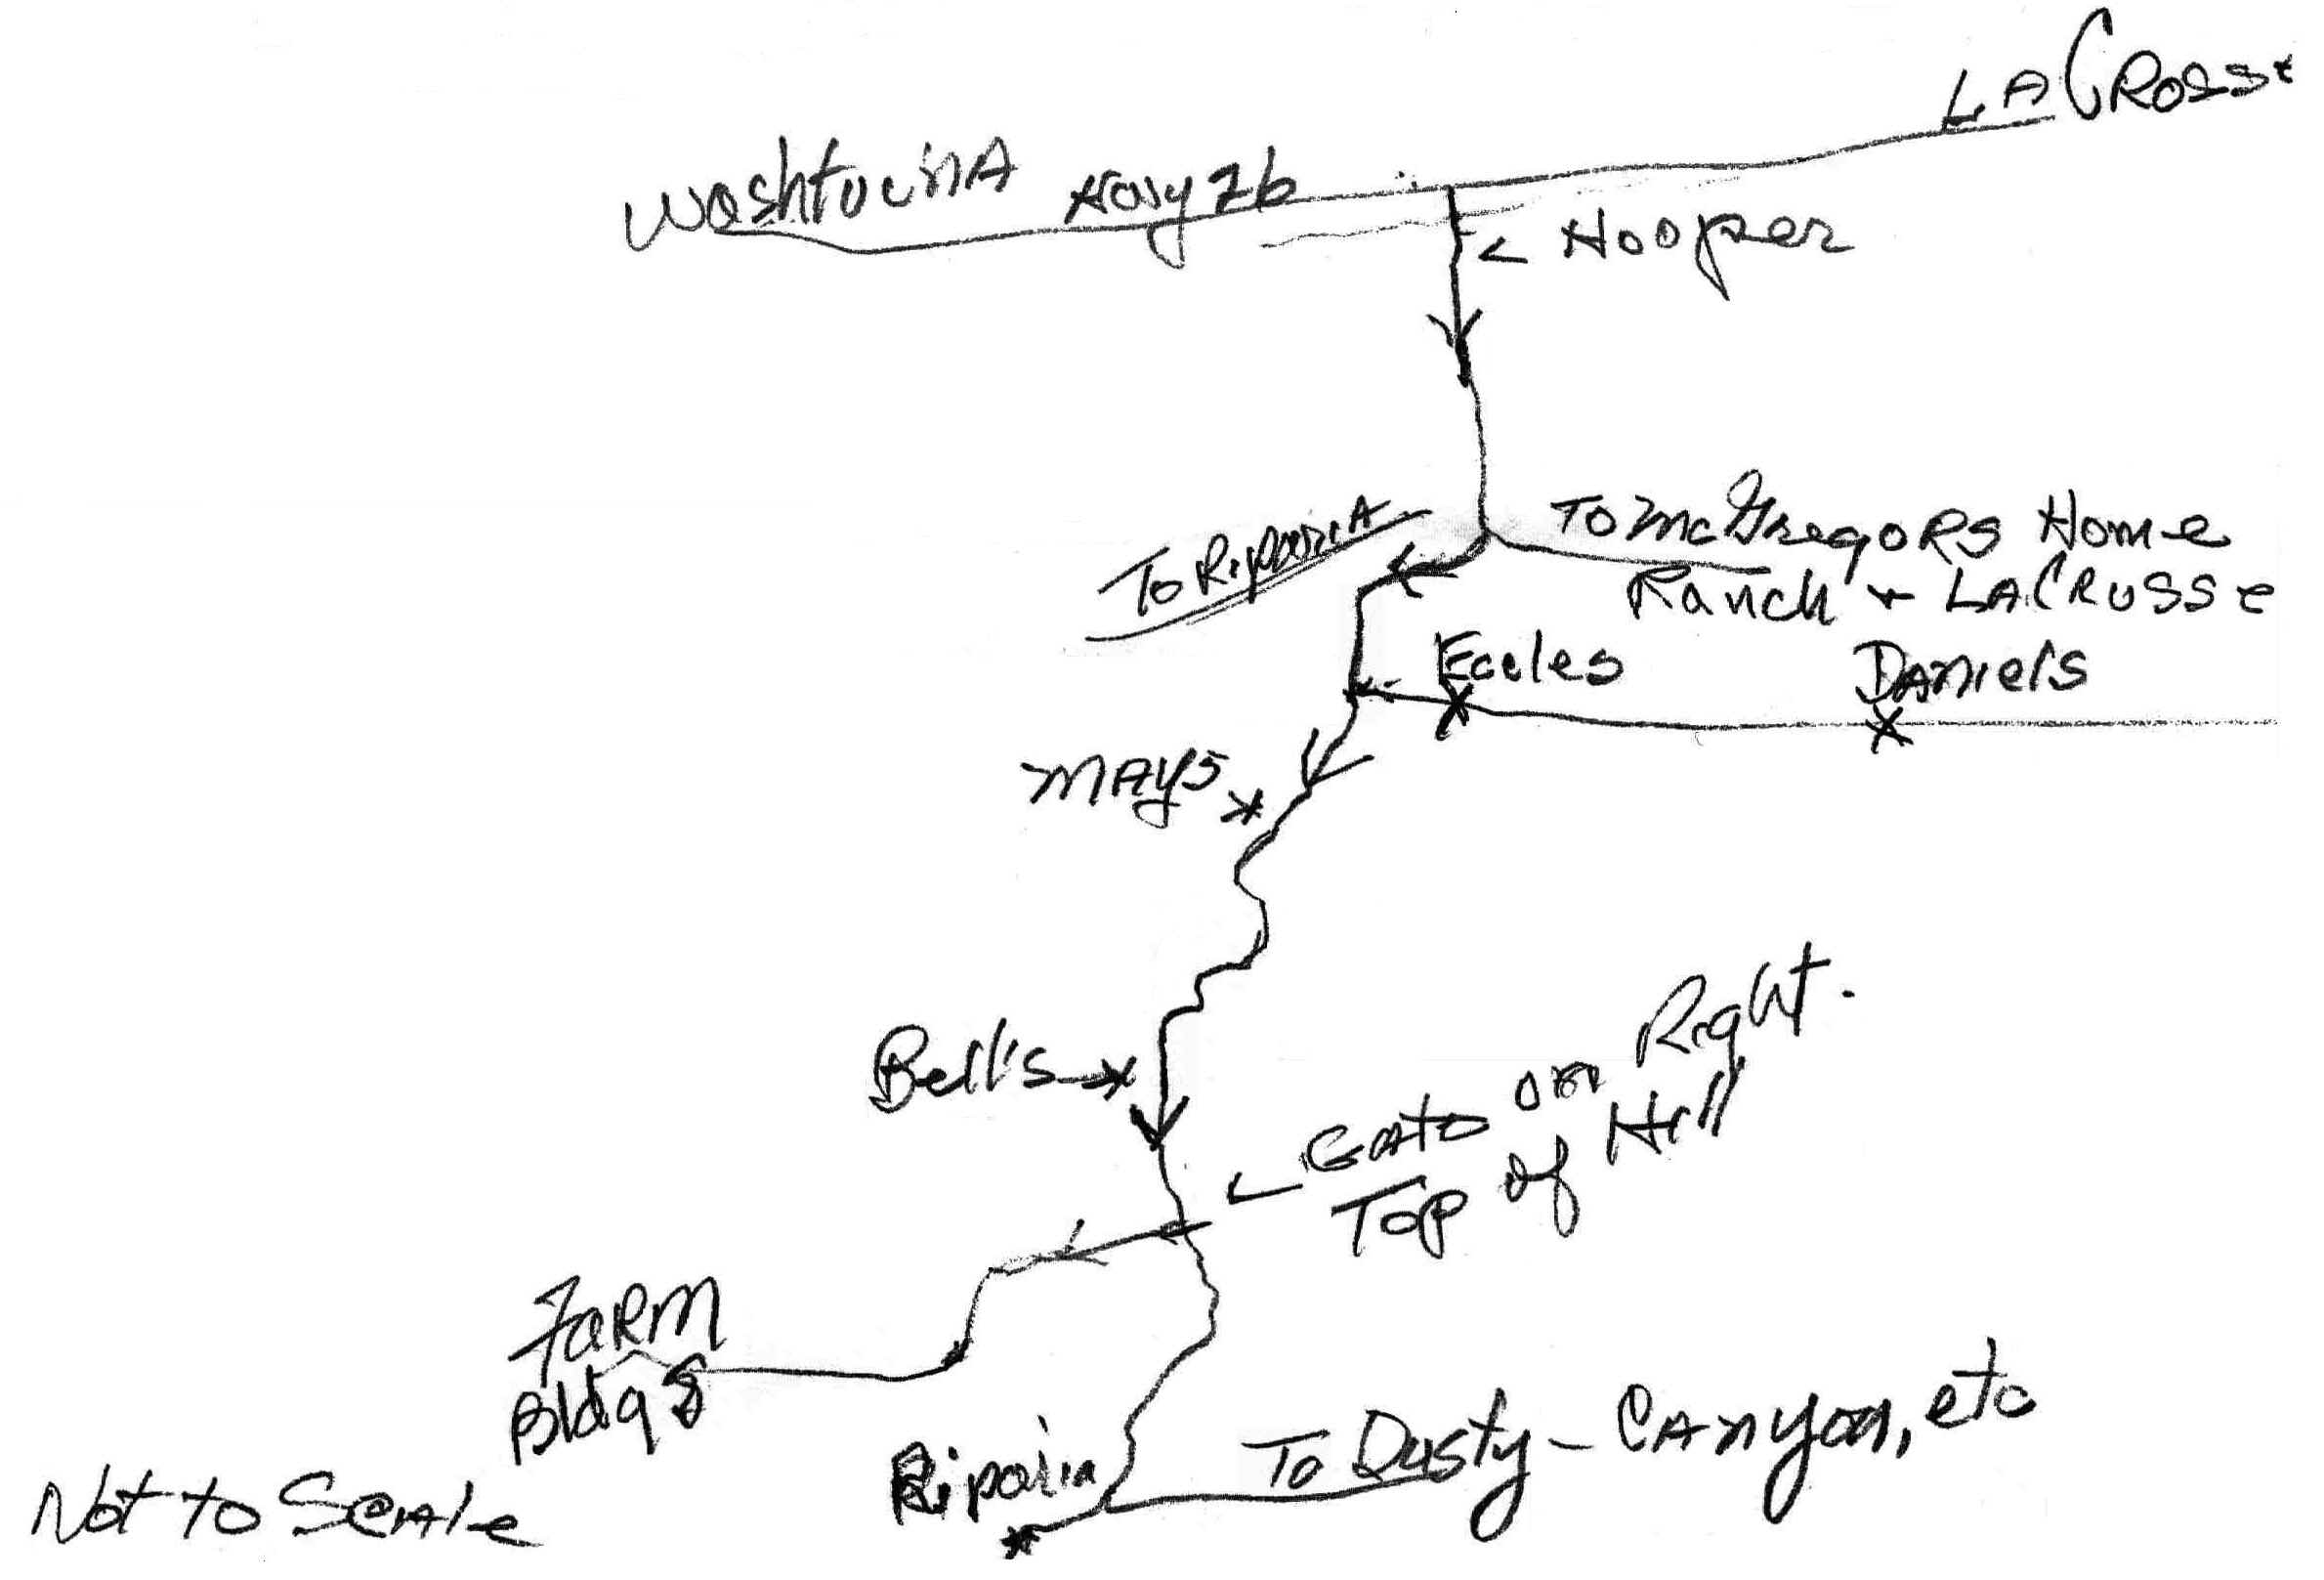 LACROSSe
WashtucnA Hwy 26
< Hooper
To RipariA
To McGregoRS Home
Ranch + LACRoSSe
Eccles
DAniels
MAyS
Bell's
Gate on Right.
Top of Hill
FaRM
Bldgs
Riparia
To Dusty - CAnyon, etc
Not to Scale